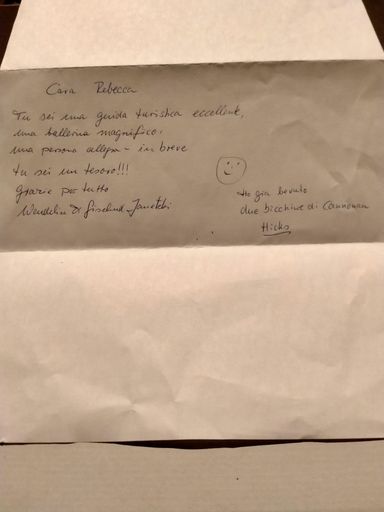 Cara Rebecca
Tu sei una guida turistica eccellente,
una ballerina magnifico,
una persona allegra - in breve
tu sei un tesoro!!!
Grazie per tutto
Wendelin &
Ho gia bevuto
due bicchine di Cannonau
Hicks